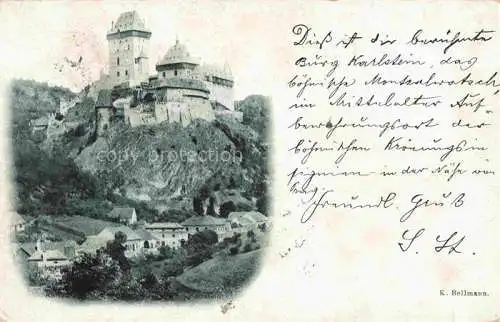 Dieß ist die berühmte
Burg Karlstein, das
böhmische Montsalwatsch
im Mittelalter Auf-
bewahrungsort der
böhmischen Krönungsin-
signien in der Nähe von
Freundl. Gruß
S. St.
K. Bellmann.
copyright protected